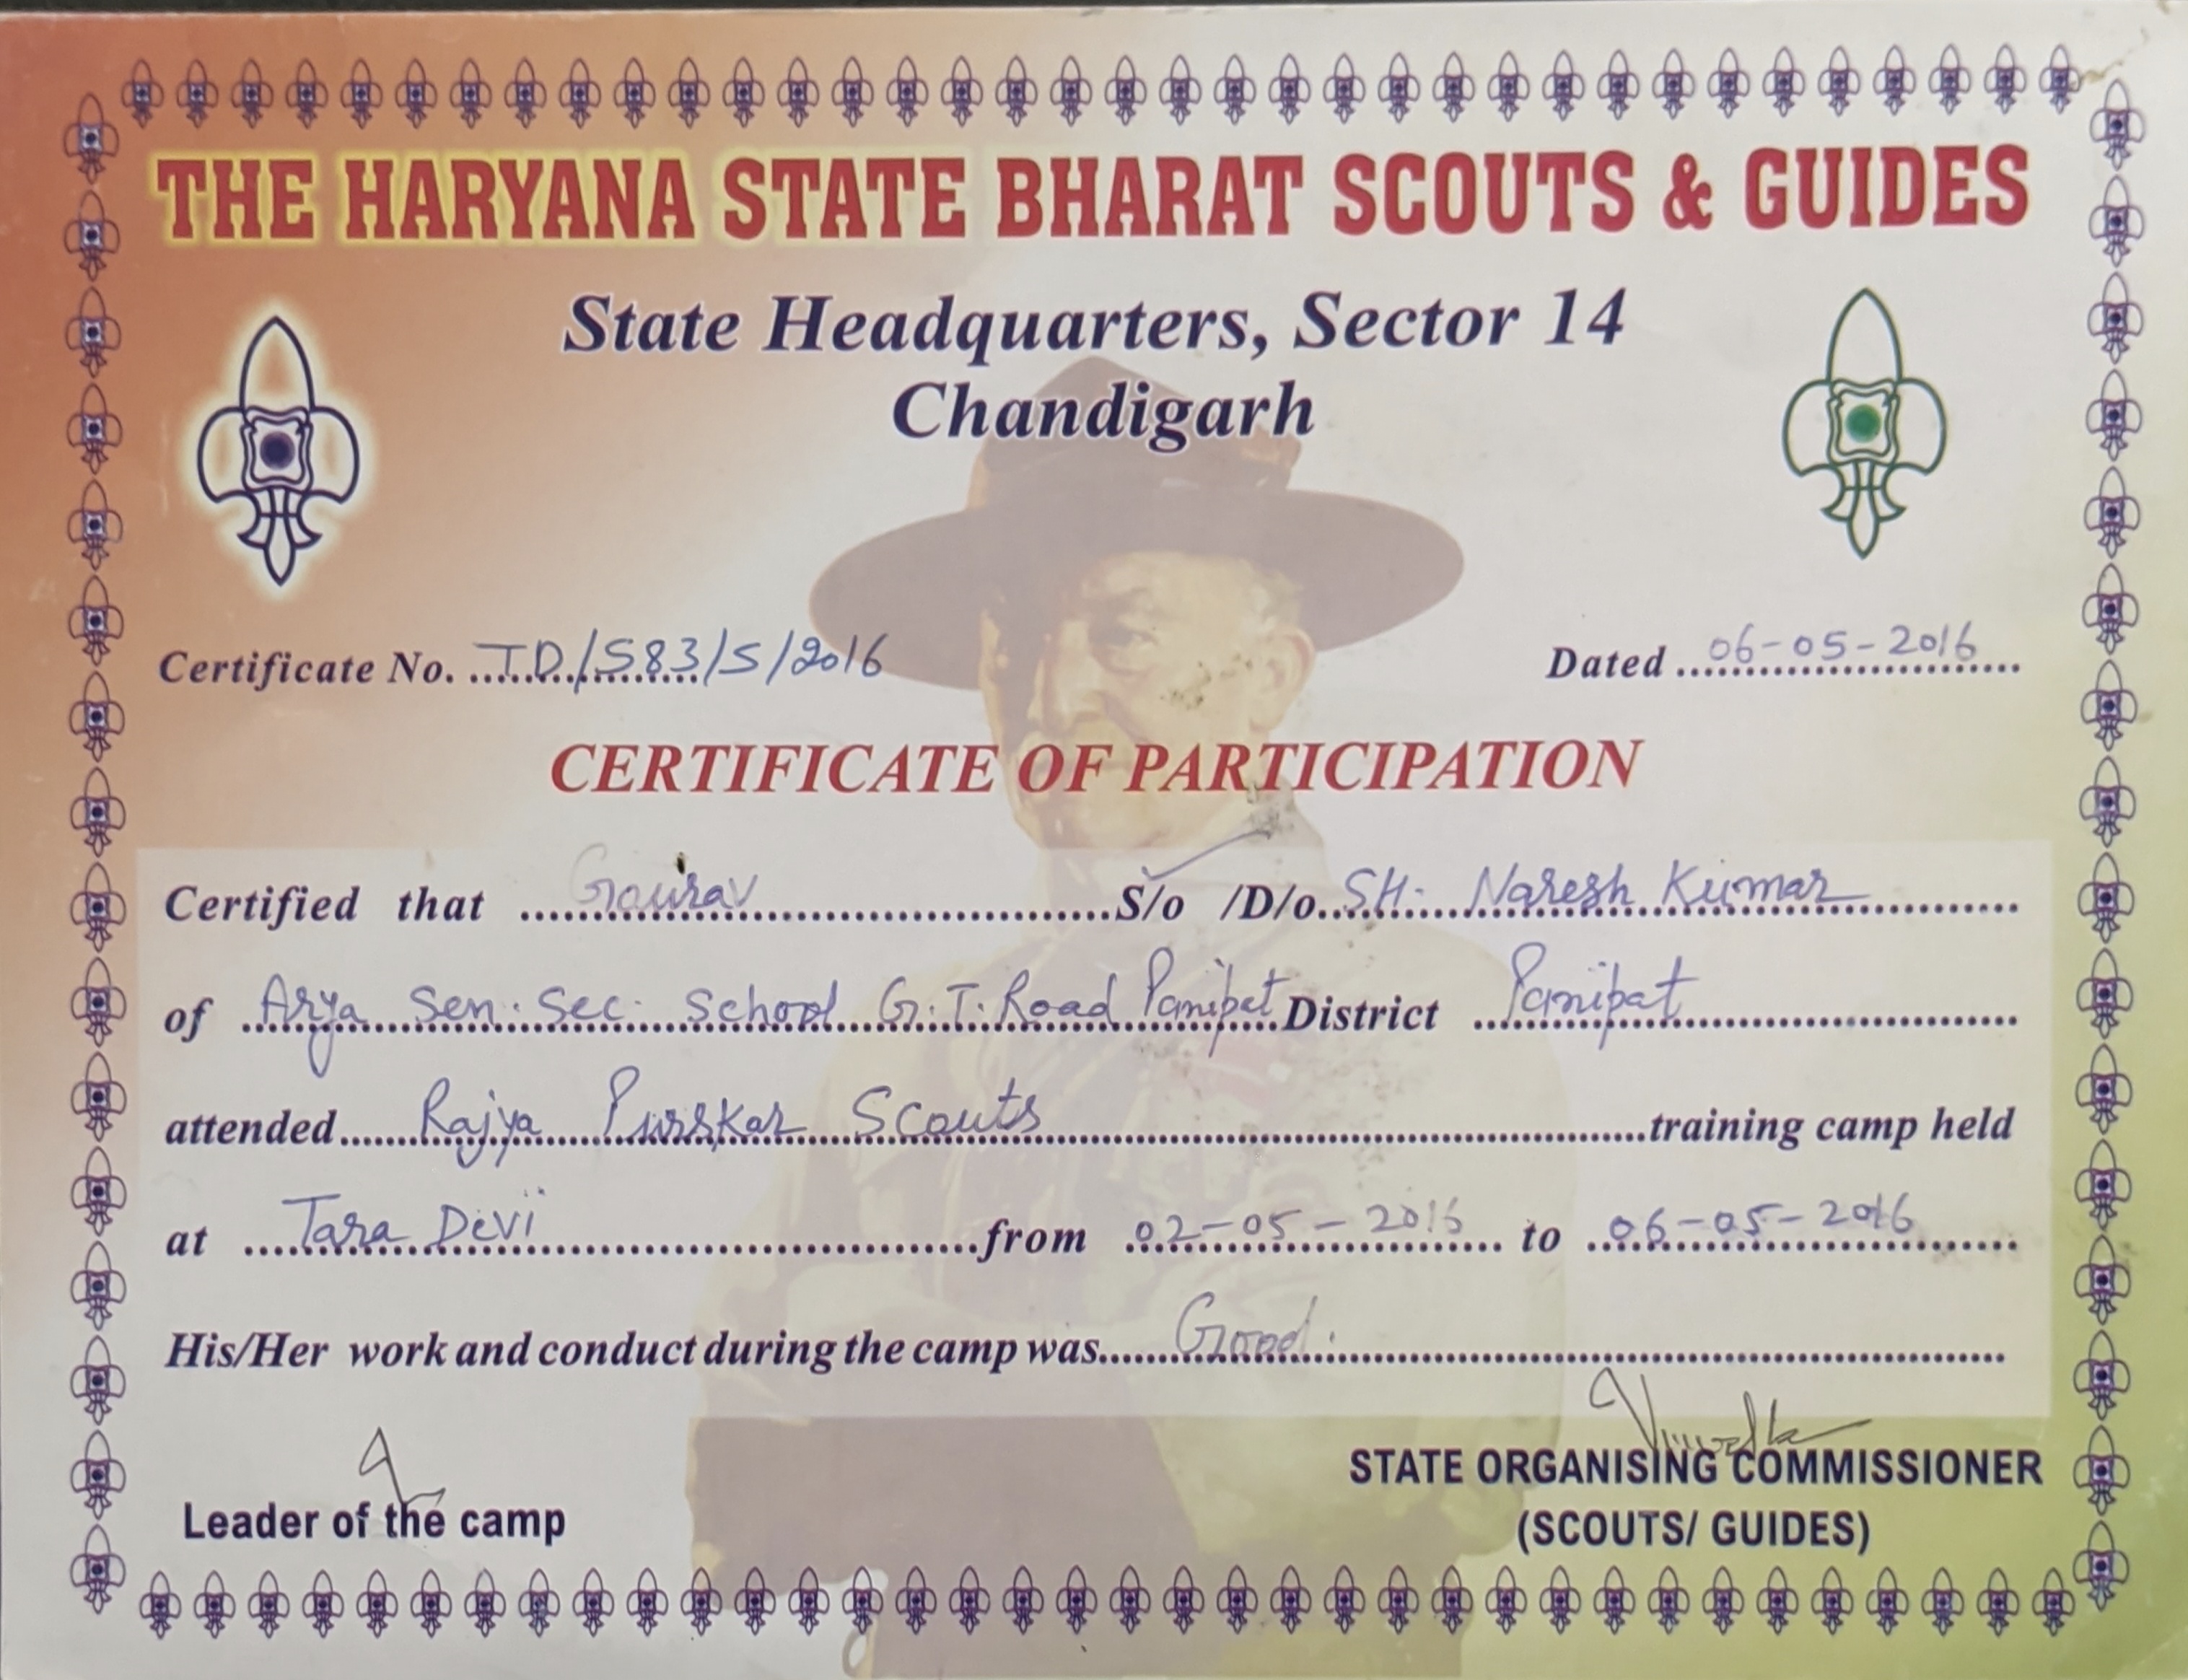 THE HARYANA STATE BHARAT SCOUTS & GUIDES
State Headquarters, Sector 14
Chandigarh
Certificate No. TD/583/S/2016 Dated 06-05-2016
CERTIFICATE OF PARTICIPATION
Certified that Gourav S/o /D/o. SH. Naresh Kumar
of Arya Sen. Sec. School G.T. Road Panipat District Panipat
attended Rajya Purskar Scouts training camp held
at Tara Devi from 02-05-2016 to 06-05-2016
His/Her work and conduct during the camp was Good.
Leader of the camp
STATE ORGANISING COMMISSIONER
(SCOUTS/ GUIDES)